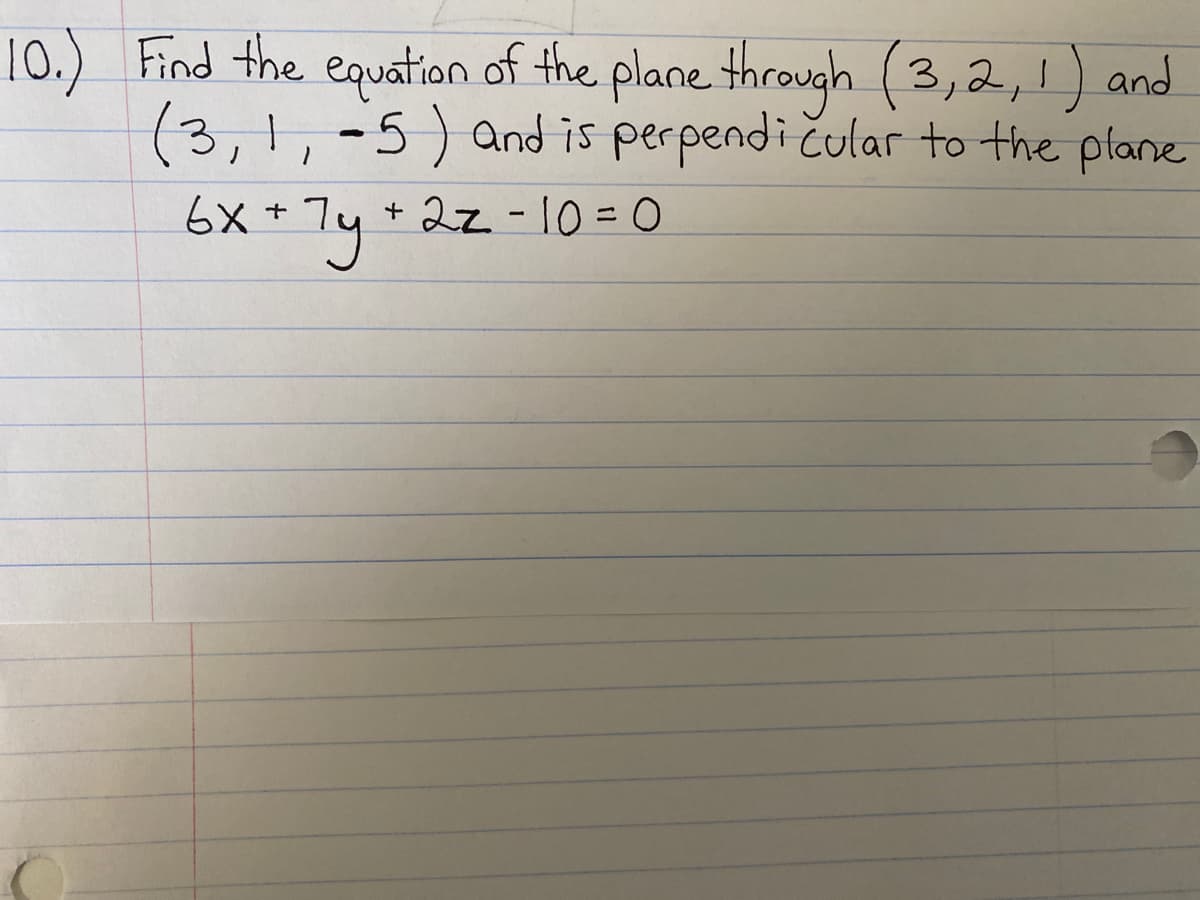 10.) Find the equation of the plane through (3,2,1) and
(3,1,-5) and is perpendicular to the plane
6x + 7y + 2z - 10 = 0